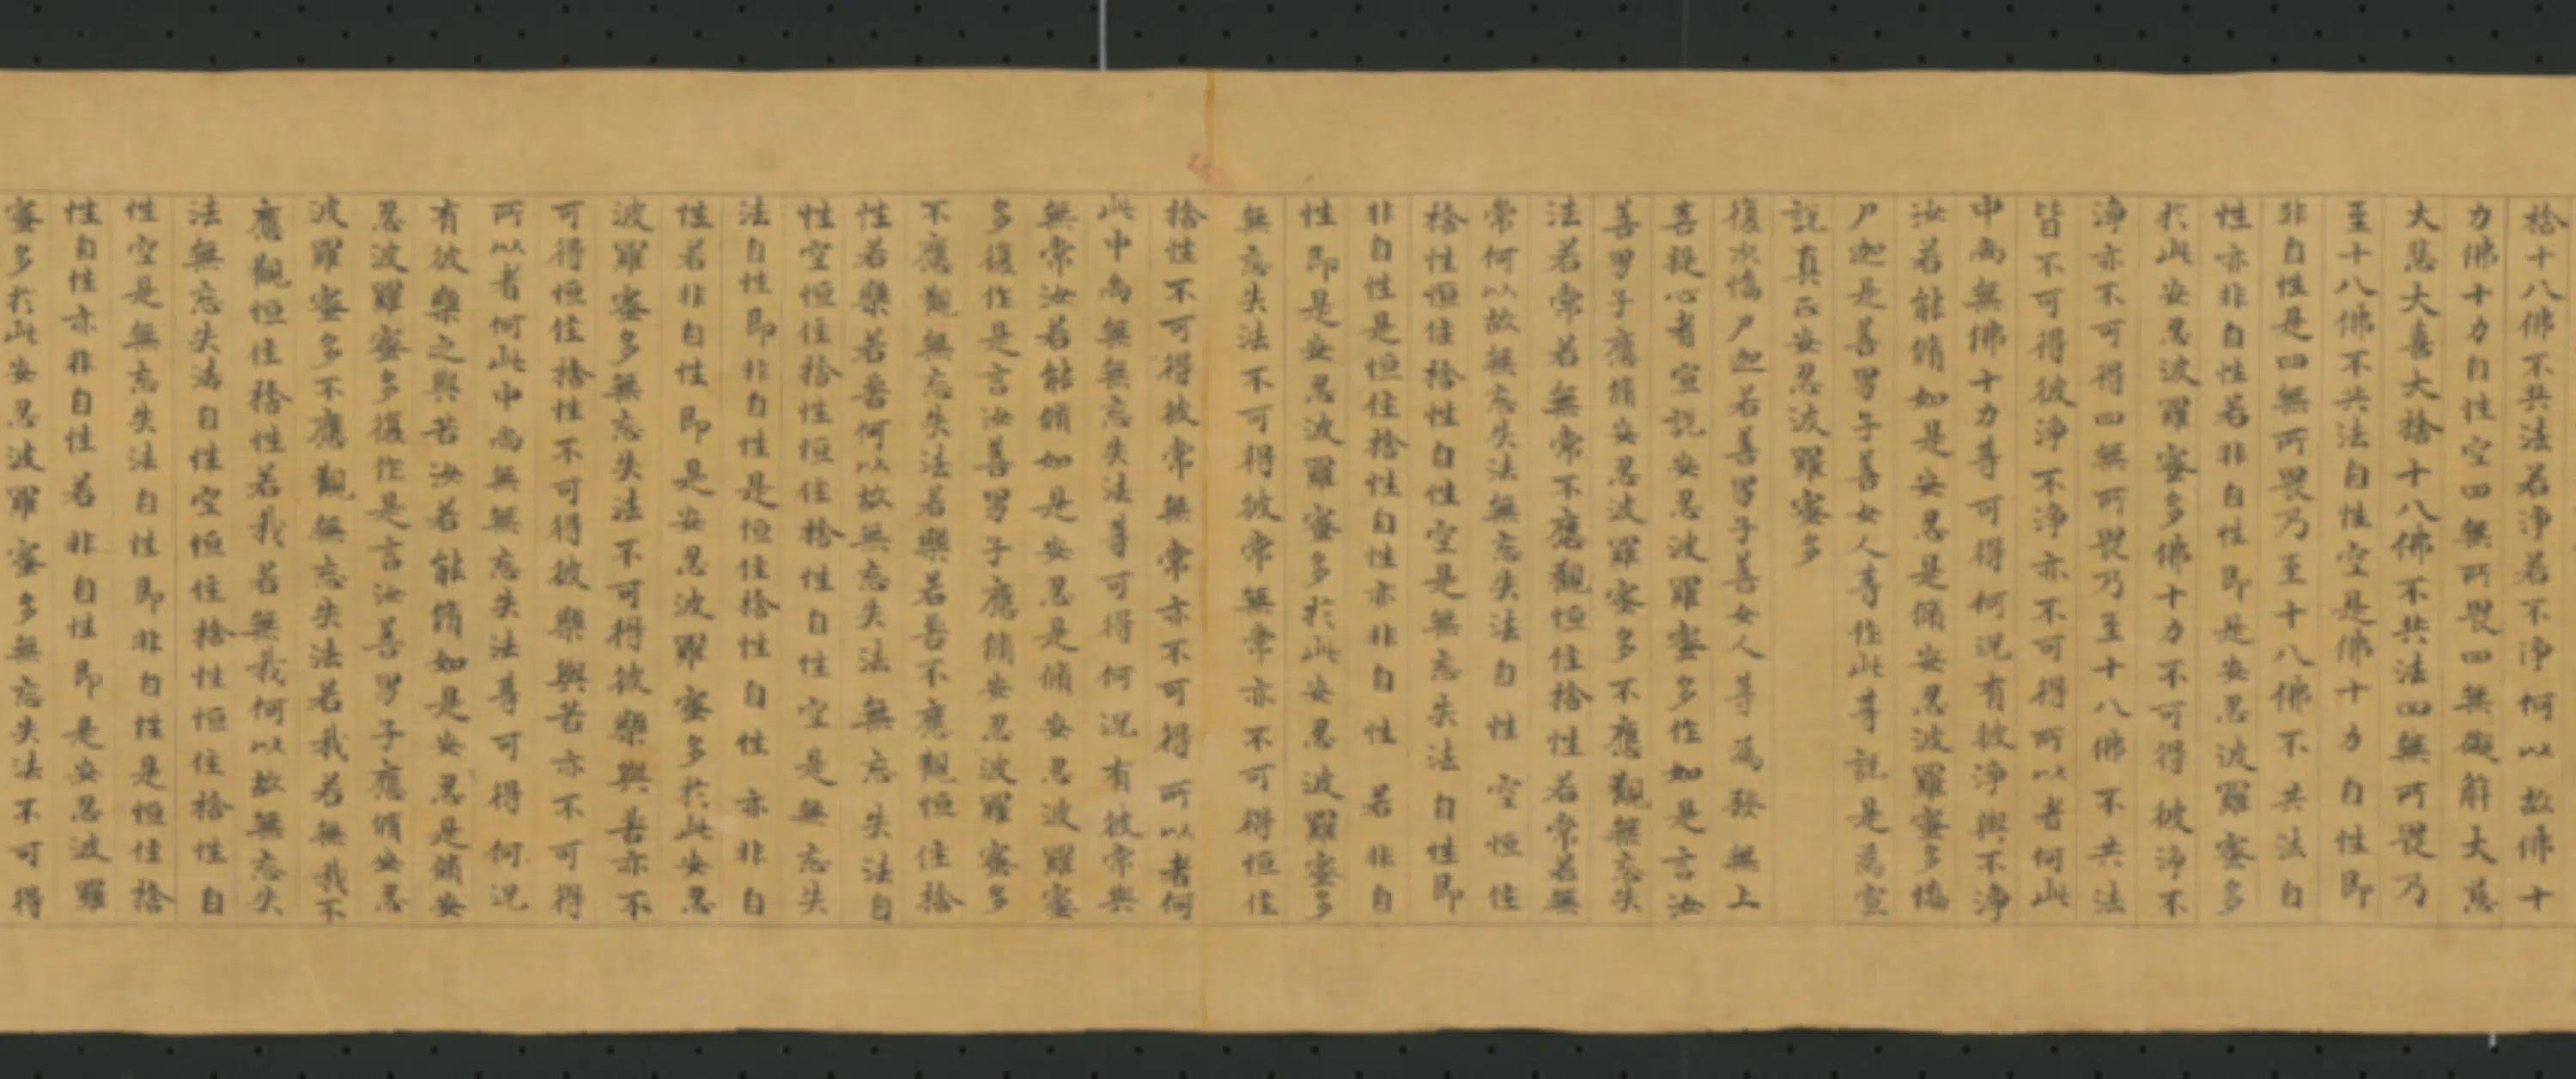 捨十八佛不共法若淨若不淨何以故佛十
力佛十力自性空四無所畏四無礙解大慈
大悲大喜大捨十八佛不共法四無所畏乃
至十八佛不共法自性空是佛十力自性即
非自性是四無所畏乃至十八佛不共法自
性亦非自性若非自性即是安忍波羅蜜多
於此安忍波羅蜜多佛十力不可得彼淨不
淨亦不可得四無所畏乃至十八佛不共法
皆不可得彼淨不淨亦不可得所以者何此
中尚無佛十力等可得何況有彼淨與不淨
汝若能脩如是安忍是脩安忍波羅蜜多憍
尸迦是善男子善女人等作此等說是為宣
說真正安忍波羅蜜多
復次憍尸迦若善男子善女人等為發無上
菩提心者宣說安忍波羅蜜多作如是言汝
善男子應脩安忍波羅蜜多不應觀無忘失
法若常若無常不應觀恒住捨性若常若無
常何以故無忘失法無忘失法自性空恒住
捨性恒住捨性自性空是無忘失法自性即
非自性是恒住捨性自性亦非自性若非自
性即是安忍波羅蜜多於此安忍波羅蜜多
無忘失法不可得彼常無常亦不可得恒住
捨性不可得彼常無常亦不可得所以者何
此中尚無無忘失法等可得何況有彼常與
無常汝若能脩如是安忍是脩安忍波羅蜜
多復作是言汝善男子應脩安忍波羅蜜多
不應觀無忘失法若樂若苦不應觀恒住捨
性若樂若苦何以故無忘失法無忘失法自
性空恒住捨性恒住捨性自性空是無忘失
法自性即非自性是恒住捨性自性亦非自
性若非自性即是安忍波羅蜜多於此安忍
波羅蜜多無忘失法不可得彼樂與苦亦不
可得恒住捨性不可得彼樂與苦亦不可得
所以者何此中尚無無忘失法等可得何況
有彼樂之與苦汝若能脩如是安忍是脩安
忍波羅蜜多復作是言汝善男子應脩安忍
波羅蜜多不應觀無忘失法若我若無我不
應觀恒住捨性若我若無我何以故無忘失
法無忘失法自性空恒住捨性恒住捨性自
性空是無忘失法自性即非自性是恒住捨
性自性亦非自性若非自性即是安忍波羅
蜜多於此安忍波羅蜜多無忘失法不可得